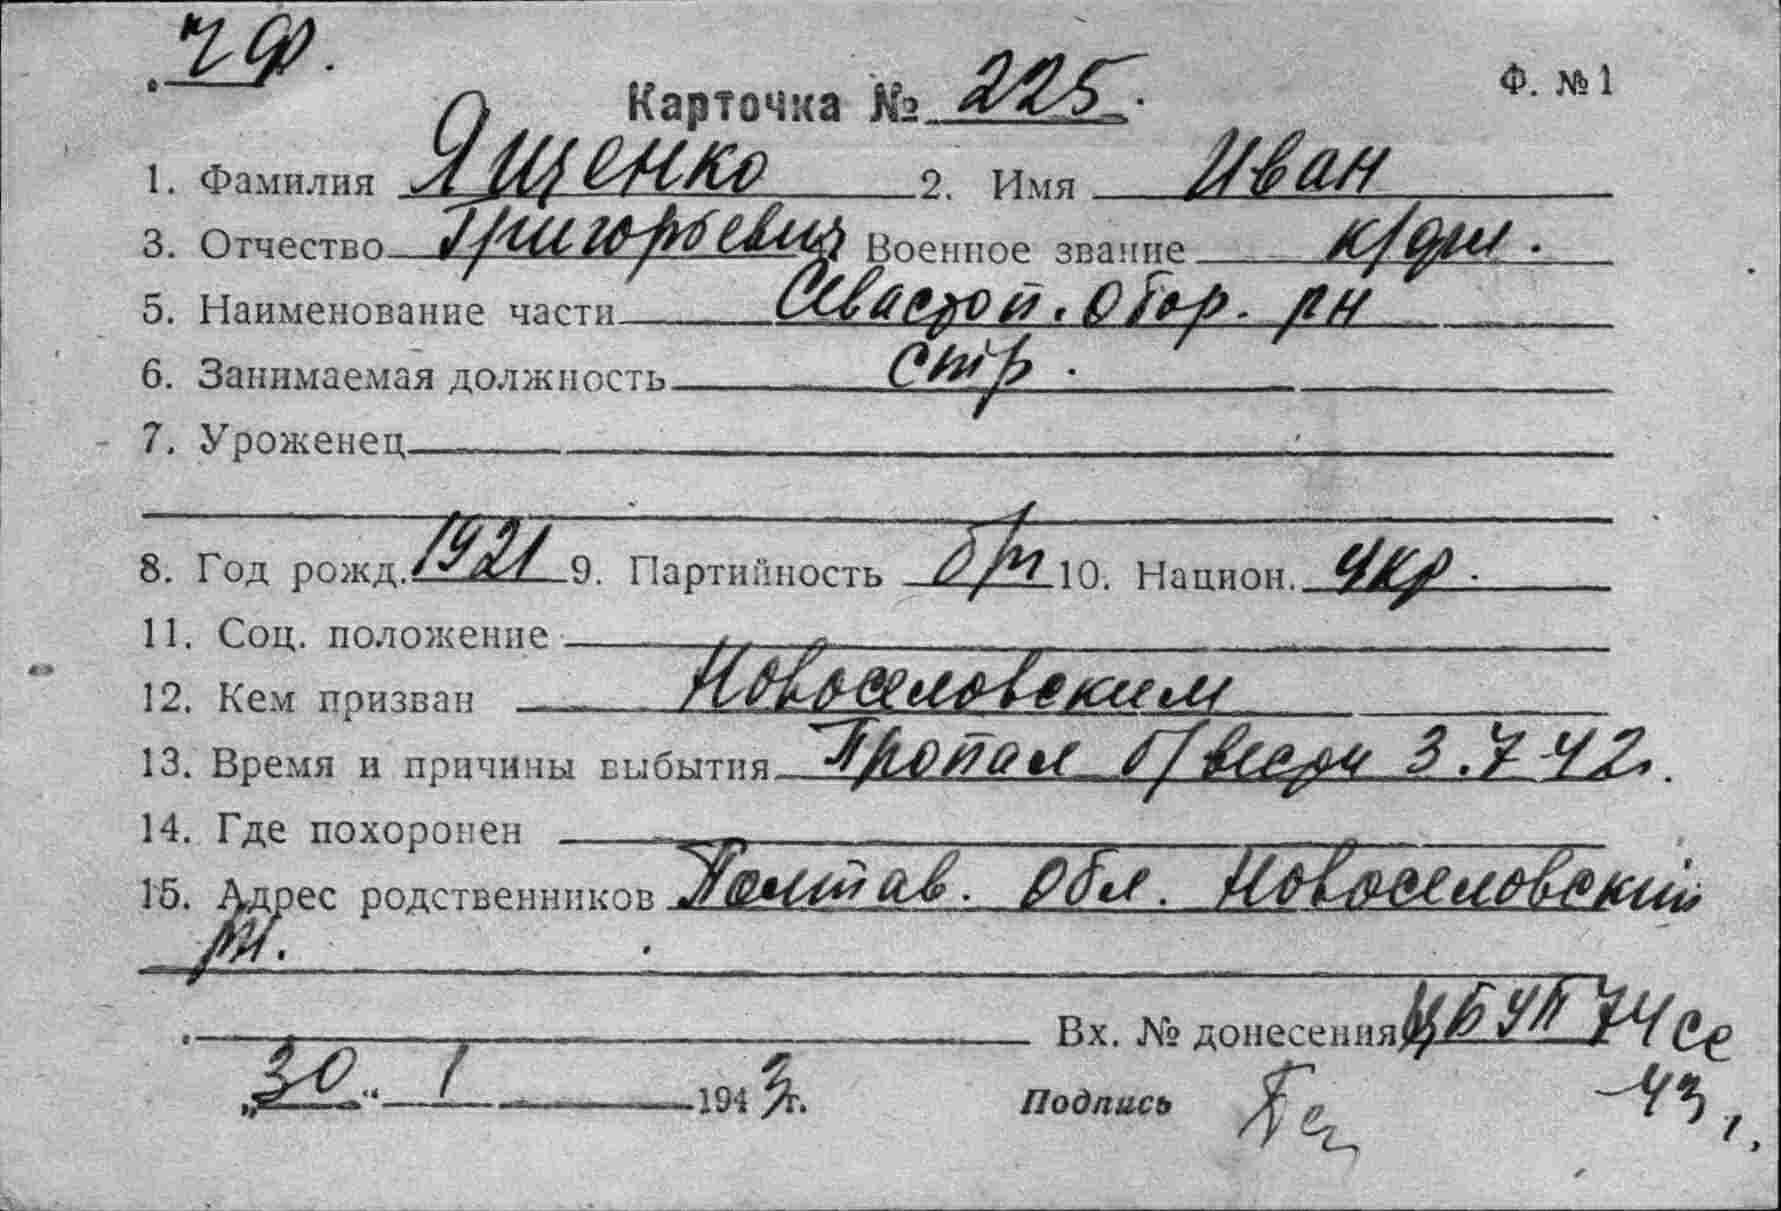 ЧФ.
Ф. №1
Карточка № 225.
1. Фамилия Ященко 2. Имя Иван
3. Отчество Григорьевич Военное звание к/фл.
5. Наименование части Севастоп. Обор. рн
6. Занимаемая должность стр.
7. Уроженец
8. Год рожд. 1921 9. Партийность б/п 10. Национ. Укр.
11. Соц. положение
12. Кем призван Новоселовским
13. Время и причины выбытия Пропал б/вести 3.7 42г.
14. Где похоронен
15. Адрес родственников Полтав. обл. Новоселовский
рн.
Вх. № донесения ЦБУП 74 сс
43г.
„30“ 1 1943г. Подпись